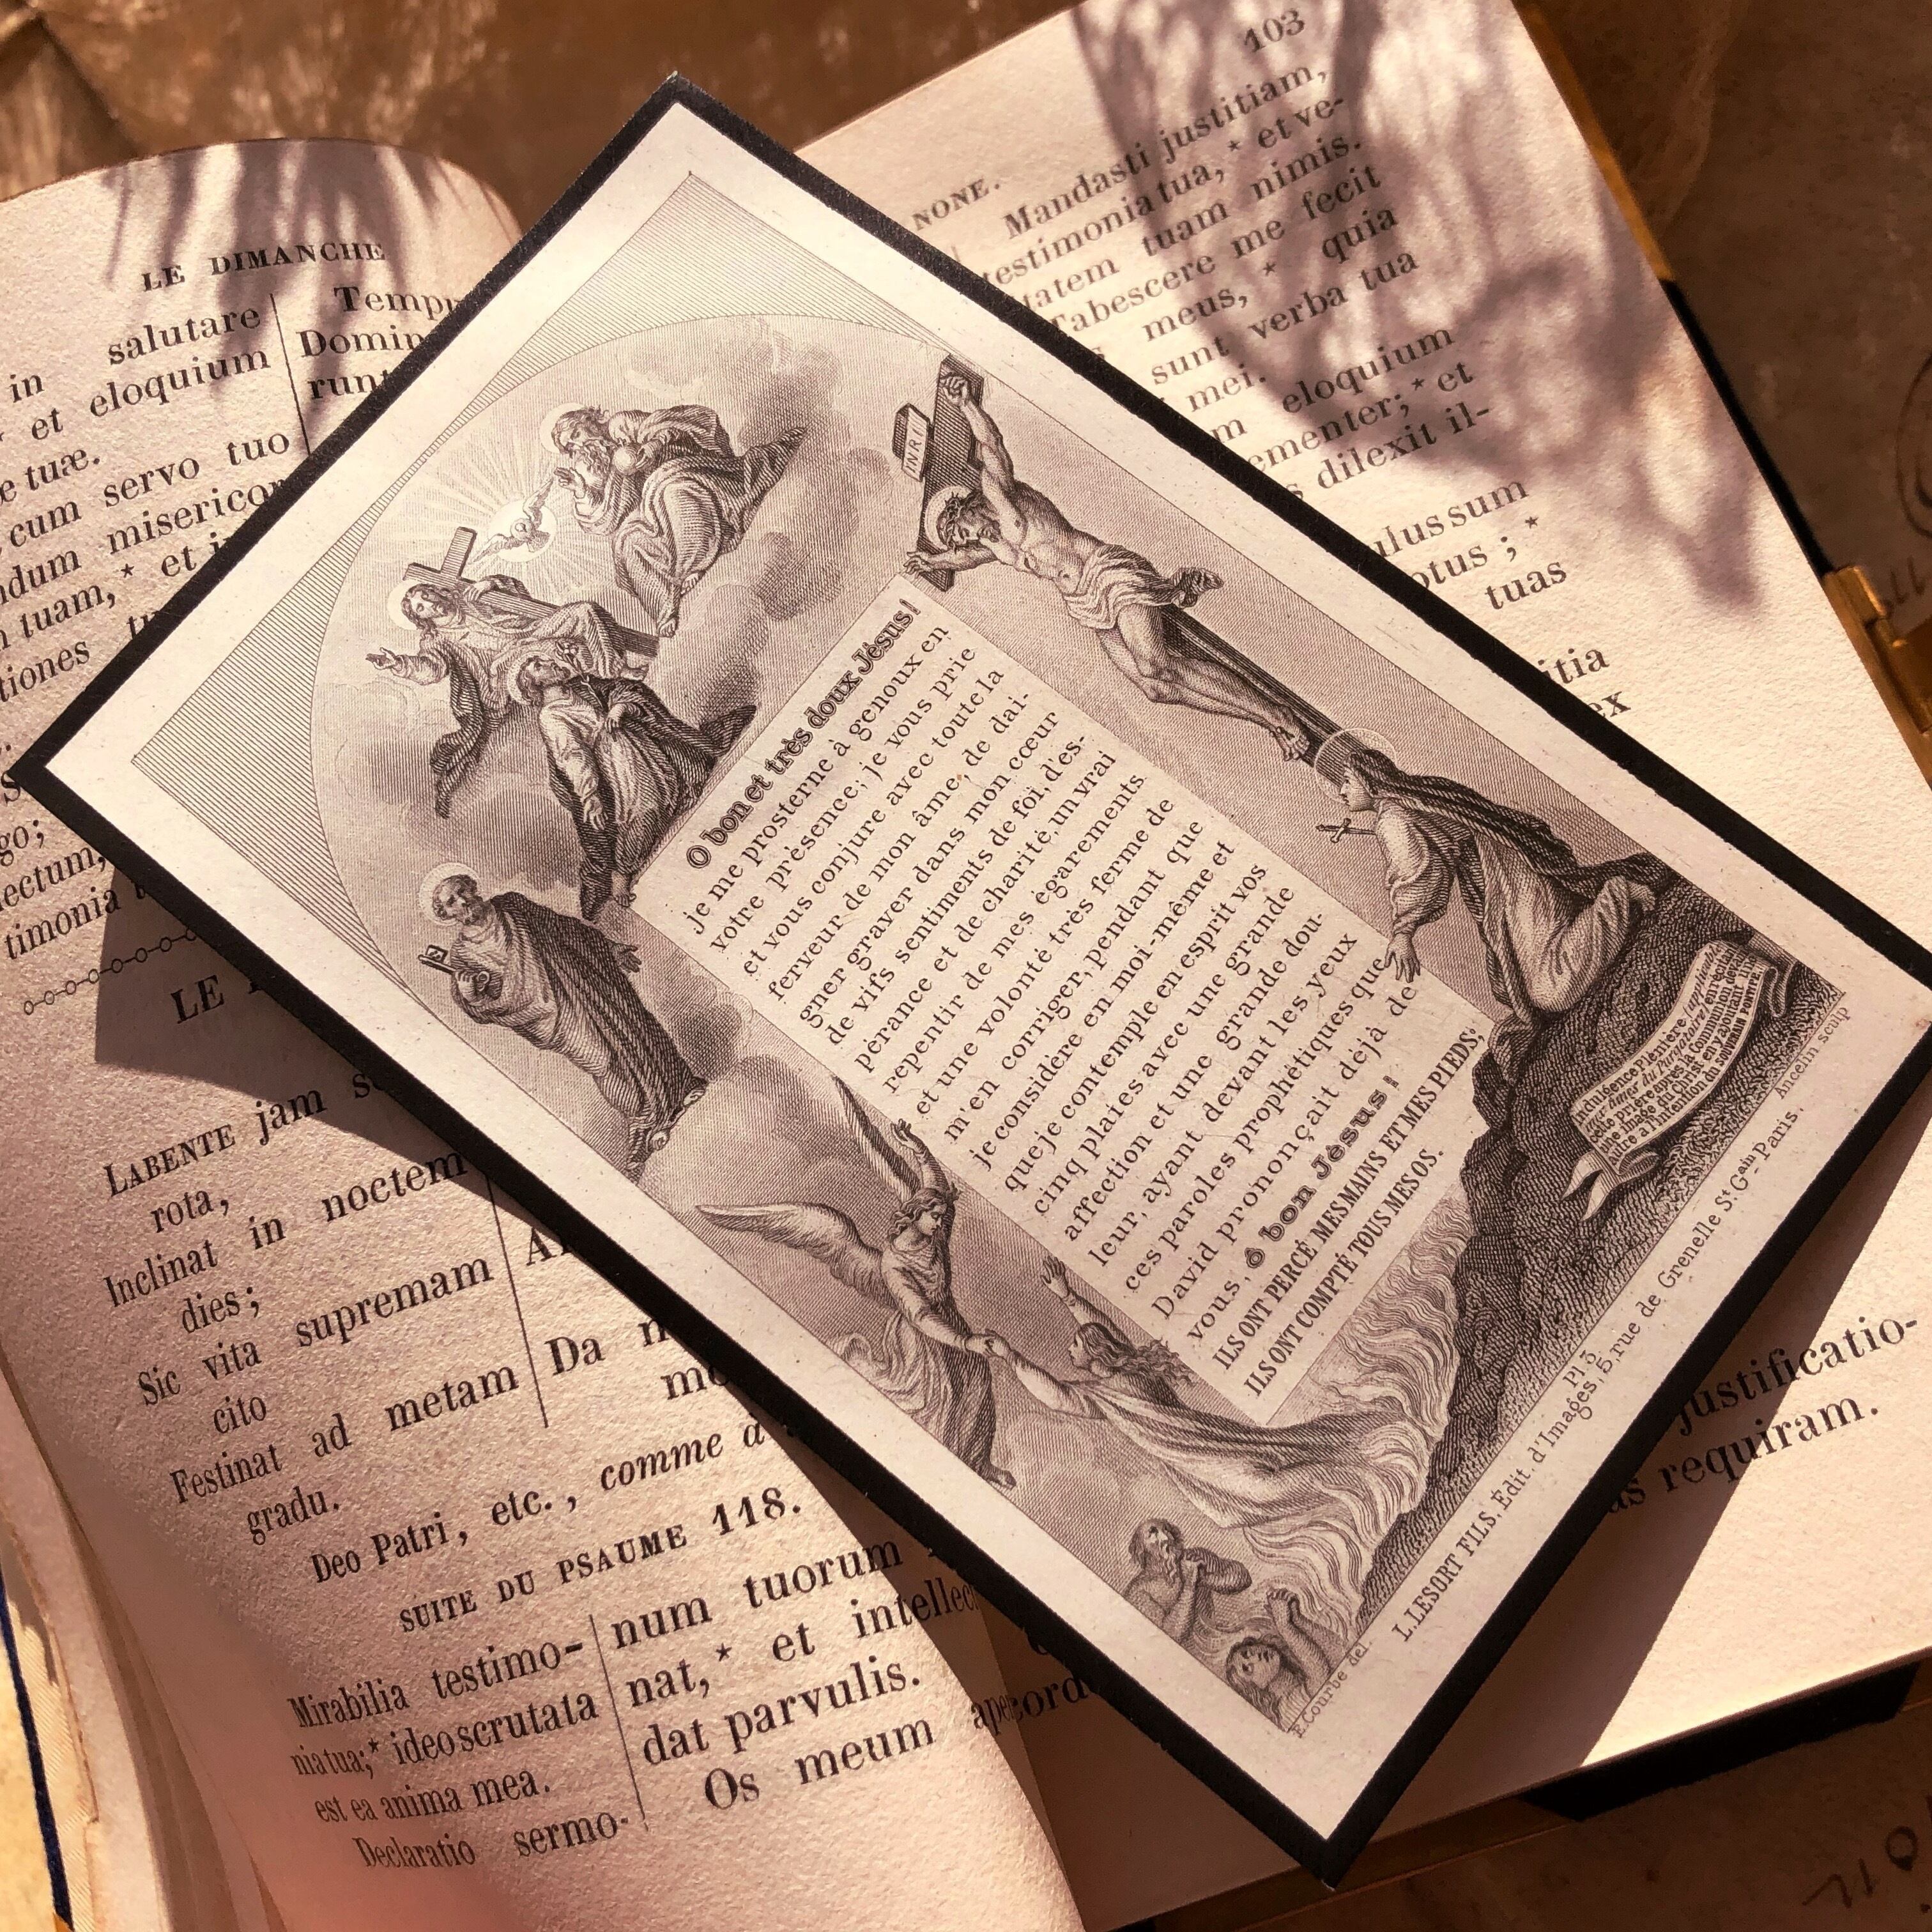 LE DIMANCHE
in salutare
et eloquium
tuæ.
cum servo tuo
misericor
tuam,* et
tiones
go;
lectum,
timonia
LE
LABENTE jam
rota,
Inclinat in noctem
dies;
Sic vita supremam
cito
Festinat ad metam
gradu.
Domin
runt
Da
Deo Patri, etc., comme
SUITE DU PSAUME 118.
Mirabilia testimo-
nia tua;* ideo scrutata
est ea anima mea.
Declaratio sermo-
num tuorum
nat,* et intellec
dat parvulis.
Os meum
INRI
O bon et très doux Jésus!
je me prosterne à genoux en
votre présence; je vous prie
et vous conjure avec toute la
ferveur de mon âme, de dai-
gner graver dans mon cœur
de vifs sentiments de foi, d'es-
pérance et de charité, un vrai
repentir de mes égarements
et une volonté très ferme de
m'en corriger, pendant que
je considère en moi-même et
que je contemple en esprit vos
cinq plaies avec une grande
affection et une grande dou-
leur, ayant devant les yeux
ces paroles prophétiques que
David prononçait déjà de
vous, ô bon Jésus!
ILS ONT PERCÉ MES MAINS ET MES PIEDS;
ILS ONT COMPTÉ TOUS MES OS.
Indulgence Plénière (applicable
aux âmes du Purgatoire) en récitant
cette prière après la Communion, devant
une Image du Christ, en y ajoutant une
autre à l'intention du SOUVERAIN PONTIFE.
F. Courbe del.
Ancelin sculp
Pl 3
L. LESORT FILS, Édit. d'Images, 5, rue de Grenelle St. Gain - Paris.
NONE.
103
Mandasti justitiam,
testimonia tua,* et ve-
tatem tuam nimis.
Tabescere me fecit
meus,* quia
sunt verba tua
mei.
eloquium
ementer;* et
dilexit il-
sum
otus;*
tuas
justificatio-
requiram.